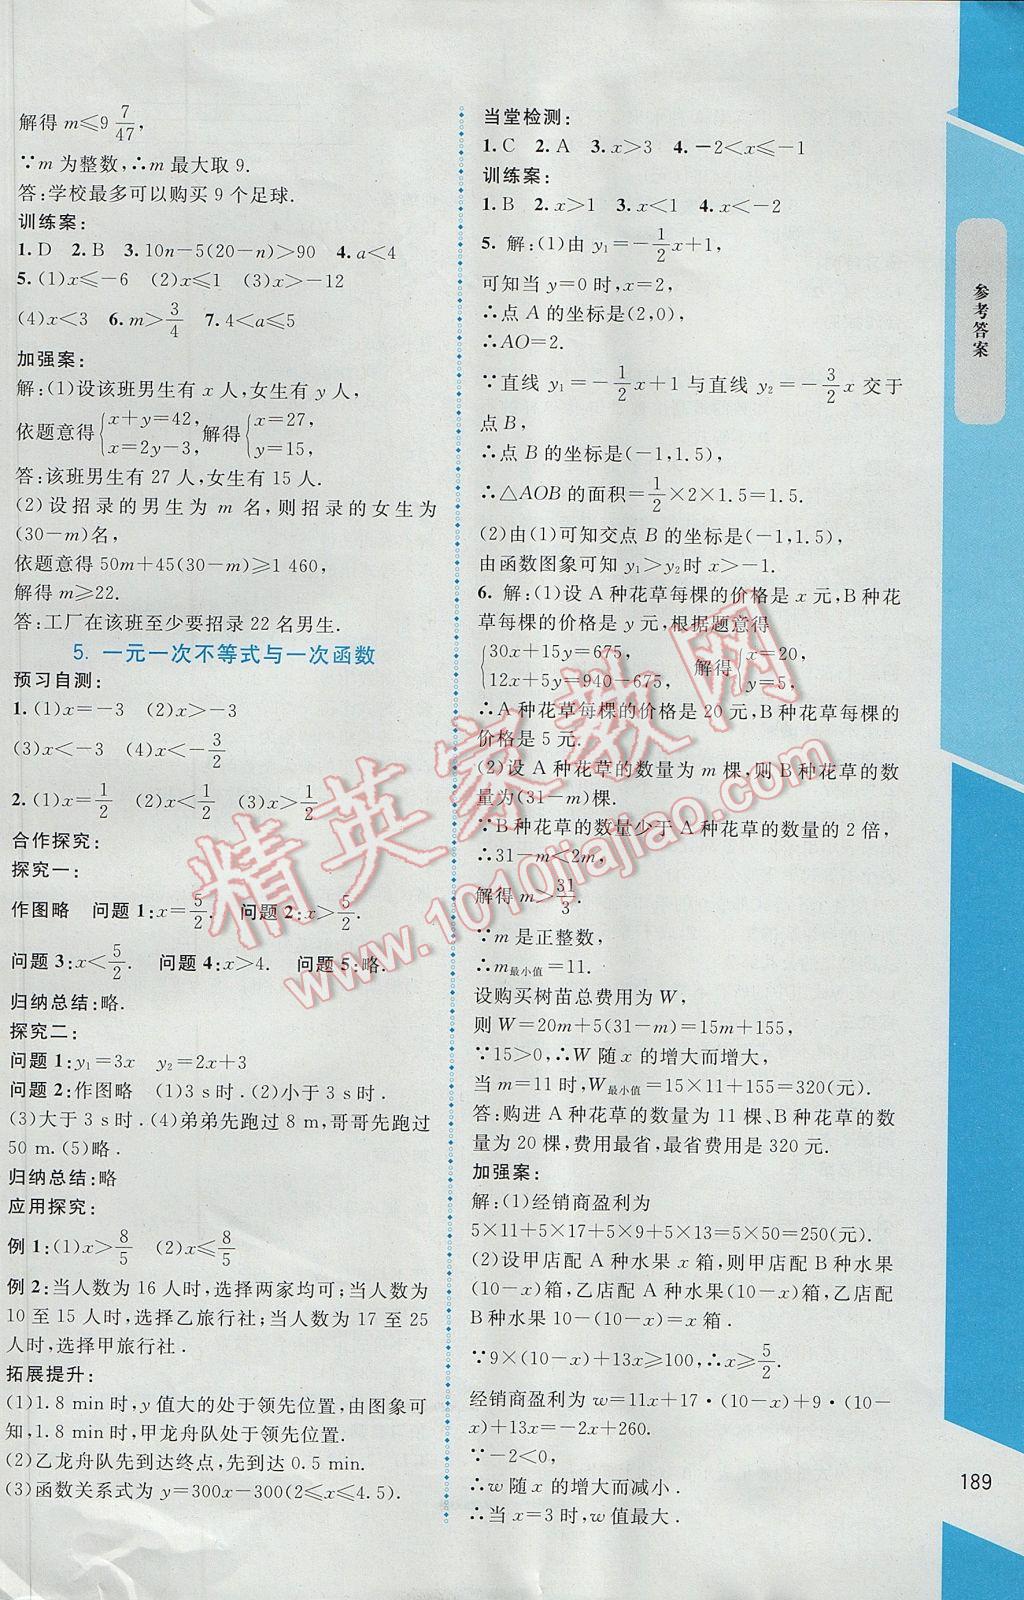 解得 m≤9 7/47,
∵m 为整数,∴m 最大取 9.
答:学校最多可以购买 9 个足球.
训练案:
1. D  2. B  3. 10n-5(20-n)>90  4. a<4
5. (1)x≤-6  (2)x≤1  (3)x>-12
(4)x<3  6. m>3/4  7. 4<a≤5
加强案:
解:(1)设该班男生有 x 人,女生有 y 人,
依题意得{x+y=42, x=2y-3, 解得{x=27, y=15,
答:该班男生有 27 人,女生有 15 人.
(2)设招录的男生为 m 名,则招录的女生为
(30-m)名,
依题意得 50m+45(30-m)≥1 460,
解得 m≥22.
答:工厂在该班至少要招录 22 名男生.
5. 一元一次不等式与一次函数
预习自测:
1. (1)x=-3  (2)x>-3
(3)x<-3  (4)x<-3/2
2. (1)x=1/2  (2)x<1/2  (3)x>1/2
合作探究:
探究一:
作图略  问题 1:x=5/2.  问题 2:x>5/2.
问题 3:x<5/2.  问题 4:x>4.  问题 5:略.
归纳总结:略.
探究二:
问题 1:y₁=3x  y₂=2x+3
问题 2:作图略  (1)3 s时.(2)小于 3 s 时.
(3)大于 3 s时.(4)弟弟先跑过 8 m,哥哥先跑过
50 m.(5)略.
归纳总结:略
应用探究:
例 1:(1)x>8/5  (2)x≤8/5
例 2:当人数为 16 人时,选择两家均可;当人数为
10 至 15 人时,选择乙旅行社;当人数为 17 至 25
人时,选择甲旅行社.
拓展提升:
(1)1.8 min 时,y 值大的处于领先位置,由图象可
知,1.8 min 时,甲龙舟队处于领先位置.
(2)乙龙舟队先到达终点,先到达 0.5 min.
(3)函数关系式为 y=300x-300(2≤x≤4.5).
当堂检测:
1. C  2. A  3. x>3  4. -2<x≤-1
训练案:
1. B  2. x>1  3. x<1  4. x<-2
5. 解:(1)由 y₁=-1/2x+1,
可知当 y=0 时,x=2,
∴点 A 的坐标是(2,0),
∴AO=2.
∵直线 y₁=-1/2x+1 与直线 y₂=-3/2x 交于
点 B,
∴点 B 的坐标是(-1,1.5),
∴△AOB 的面积=1/2×2×1.5=1.5.
(2)由(1)可知交点 B 的坐标是(-1,1.5),
由函数图象可知 y₁>y₂时 x>-1.
6. 解:(1)设 A 种花草每棵的价格是 x 元,B 种花
草每棵的价格是 y 元,根据题意得
{30x+15y=675, 12x+5y=940-675, 解得{x=20, y=5,
∴A 种花草每棵的价格是 20 元,B 种花草每棵的
价格是 5 元.
(2)设 A 种花草的数量为 m 棵,则 B 种花草的数
量为(31-m)棵.
∵B 种花草的数量少于 A 种花草的数量的 2 倍,
∴31-m<2m,
解得 m>31/3.
∵m 是正整数,
∴m最小值=11.
设购买树苗总费用为 W,
则 W=20m+5(31-m)=15m+155,
∵15>0,∴W 随 x 的增大而增大,
当 m=11 时,W最小值=15×11+155=320(元).
答:购进 A 种花草的数量为 11 棵、B 种花草的数
量为 20 棵,费用最省,最省费用是 320 元.
加强案:
解:(1)经销商盈利为
5×11+5×17+5×9+5×13=5×50=250(元).
(2)设甲店配 A 种水果 x 箱,则甲店配 B 种水果
(10-x)箱,乙店配 A 种水果(10-x)箱,乙店配
B 种水果 10-(10-x)=x 箱.
∵9×(10-x)+13x≥100,∴x≥5/2.
经销商盈利为 w=11x+17·(10-x)+9·(10-
x)+13x=-2x+260.
∵-2<0,
∴w随 x 的增大而减小.
∴当 x=3时,w值最大.
参考答案
189
精英家教网
www.1010jiajiao.com